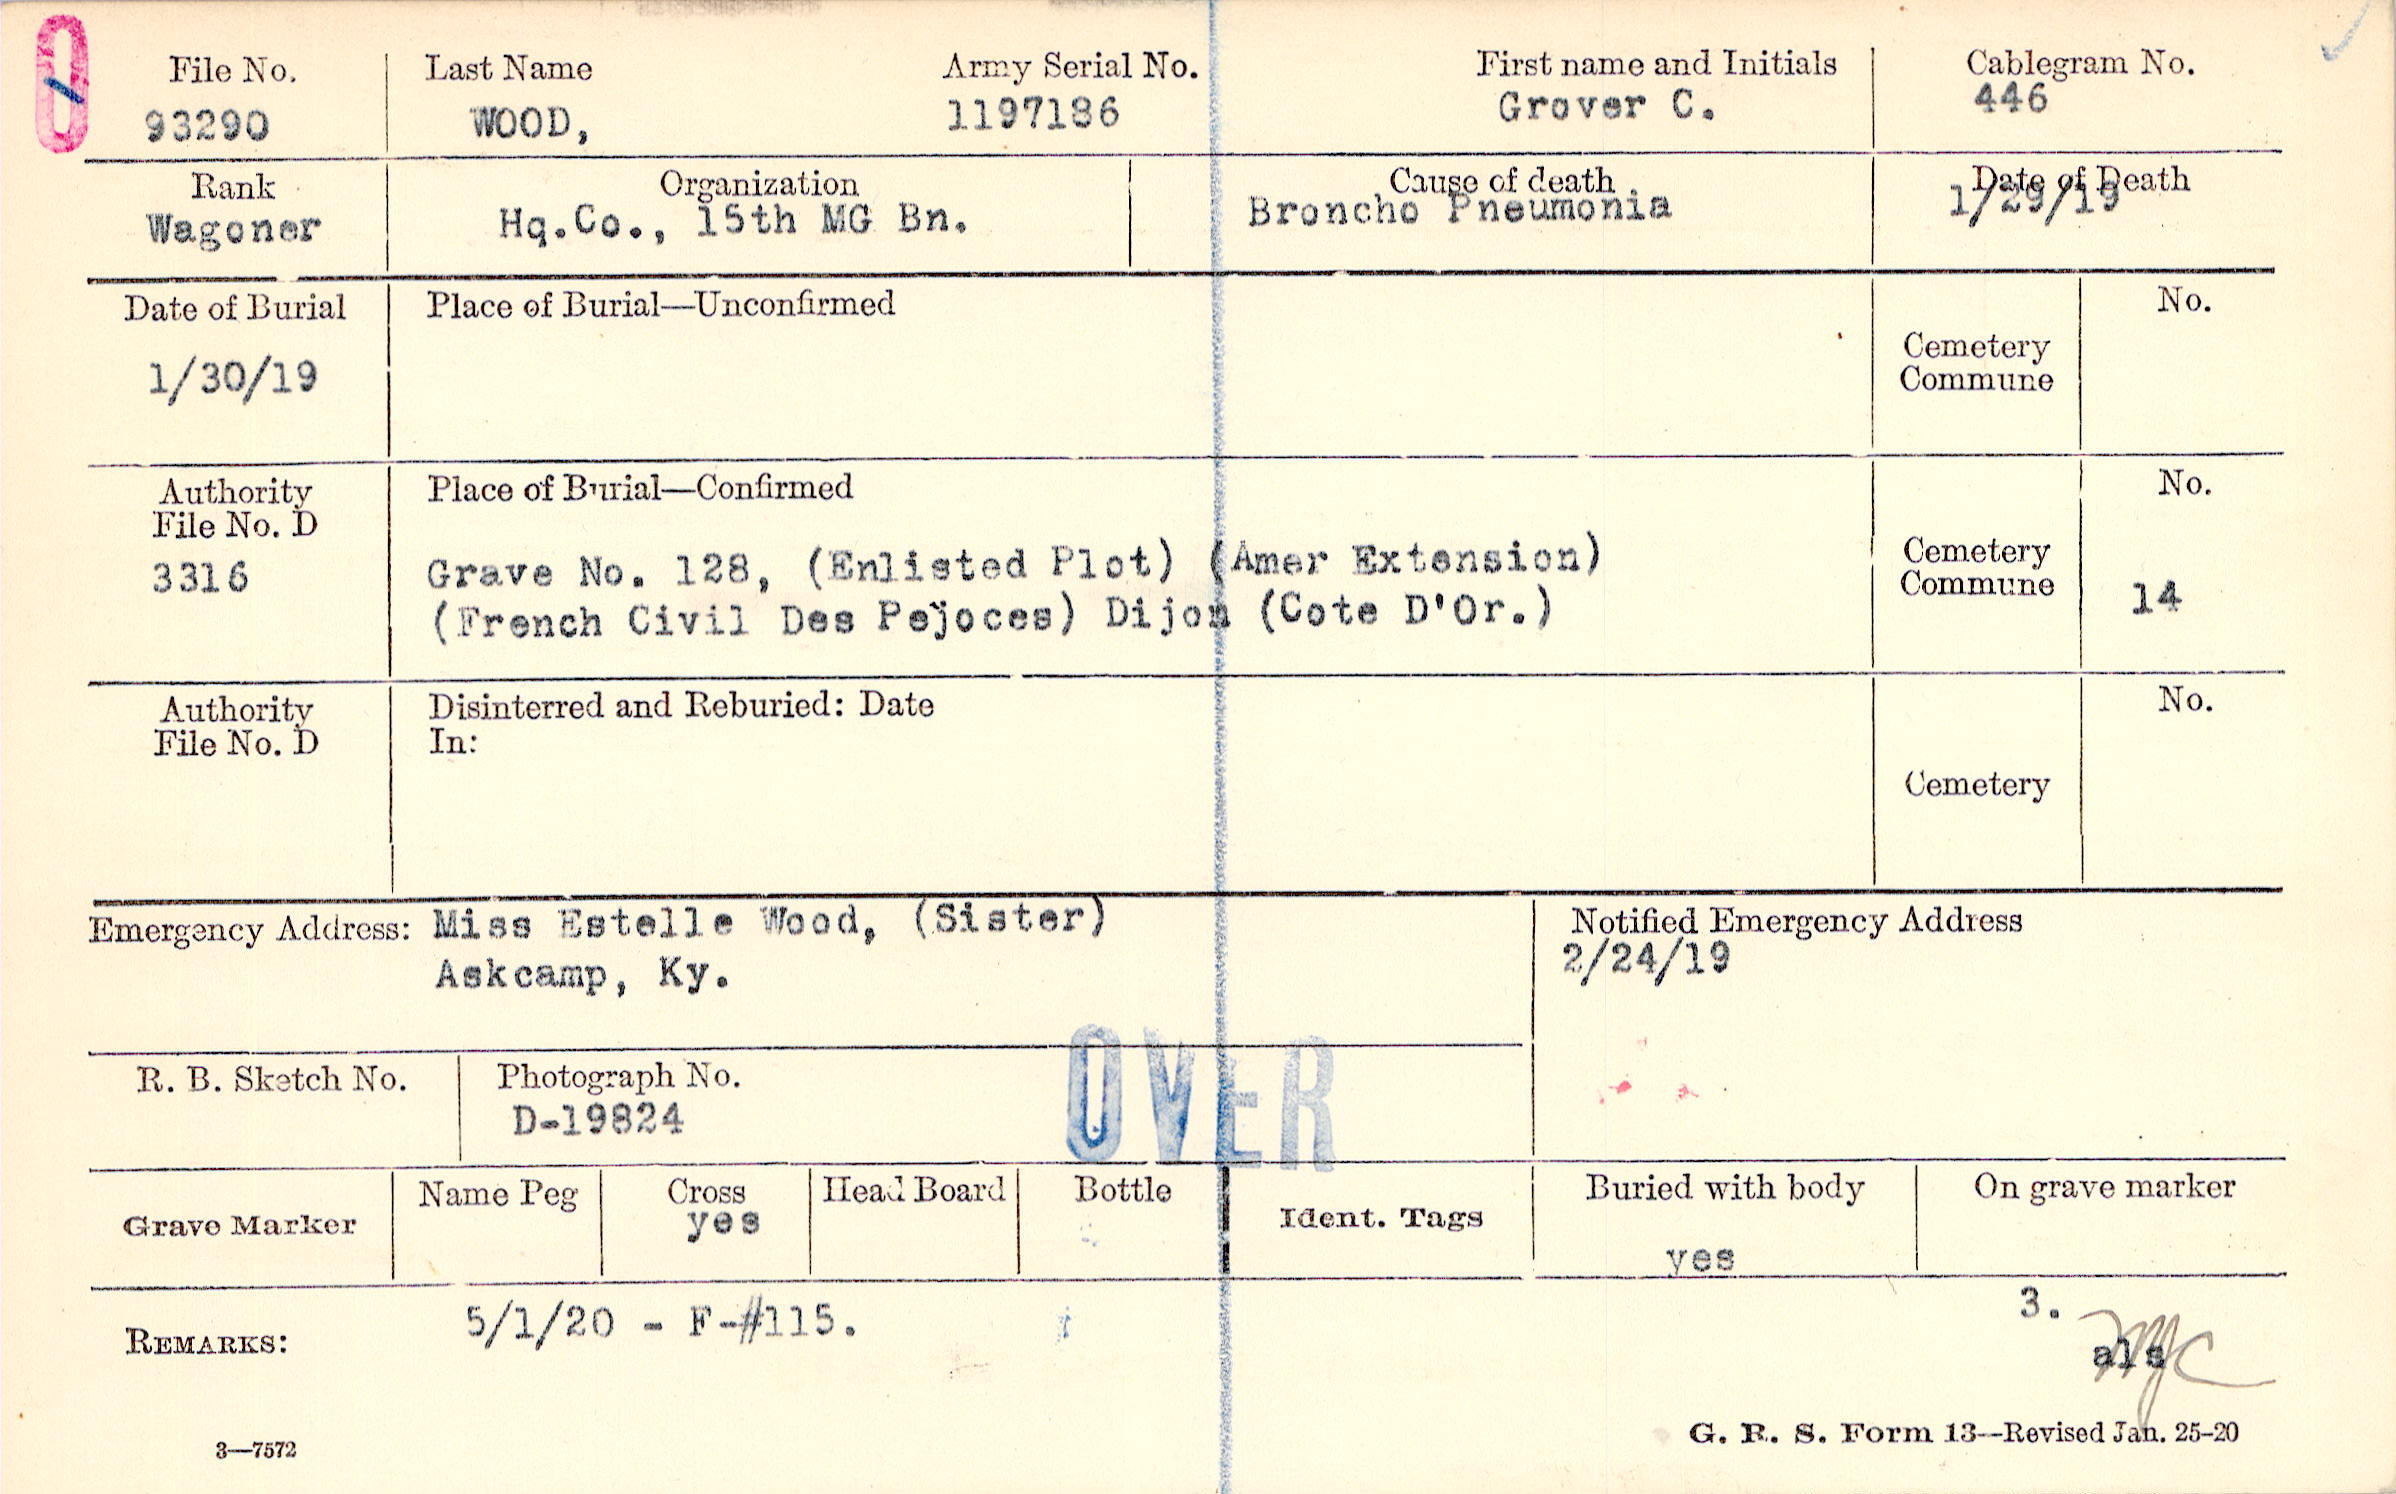 File No. Last Name Army Serial No. First name and Initials Cablegram No.
93290 WOOD, 1197186 Grover C. 446
Rank Organization Cause of death Date of Death
Wagoner Hq.Co., 15th MG Bn. Broncho Pneumonia 1/29/19
Date of Burial Place of Burial—Unconfirmed No.
1/30/19 Cemetery
Commune
Authority Place of Burial—Confirmed No.
File No. D
3316 Grave No. 128, (Enlisted Plot) (Amer Extension) Cemetery
(French Civil Des Pejoces) Dijon (Cote D'Or.) Commune 14
Authority Disinterred and Reburied: Date No.
File No. D In:
Cemetery
Emergency Address: Miss Estelle Wood, (Sister) Notified Emergency Address
Askcamp, Ky. 2/24/19
OVER
R. B. Sketch No. Photograph No.
D-19824
Grave Marker Name Peg Cross Head Board Bottle Ident. Tags Buried with body On grave marker
yes yes
REMARKS: 5/1/20 - F-#115. 3.
als
3—7572 G. R. S. Form 13—Revised Jan. 25-20